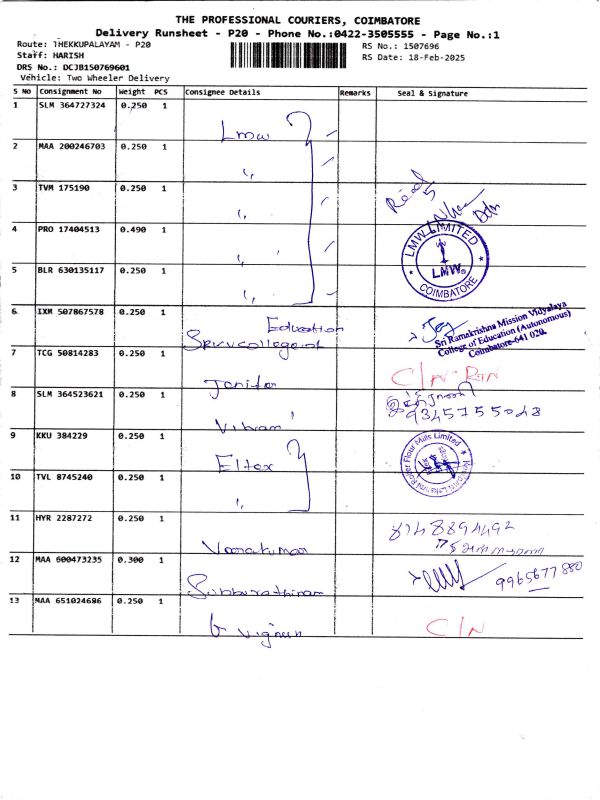 THE PROFESSIONAL COURIERS, COIMBATORE
Delivery Runsheet - P20 - Phone No.:0422-3505555 - Page No.:1
Route: THEKKUPALAYAM - P20
RS No.: 1507696
Staff: HARISH
RS Date: 18-Feb-2025
DRS No.: DCJB150769601
Vehicle: Two Wheeler Delivery
S No Consignment No Weight PCS Consignee Details Remarks Seal & Signature
1 SLM 364727324 0.250 1 Lmw
2 MAA 200246703 0.250 1 "
3 TVM 175190 0.250 1 "
4 PRO 17404513 0.490 1 "
5 BLR 630135117 0.250 1 "
LMW LIMITED
LMW
COIMBATORE
6 IXM 507867578 0.250 1 Education
Srkv college of
Sri Ramakrishna Mission Vidyalaya
College of Education (Autonomous)
Coimbatore-641 020.
7 TCG 50814283 0.250 1 Jenifer C/N
8 SLM 364523621 0.250 1 9345755048
9 KKU 384229 0.250 1 Eltex
10 TVL 8745240 0.250 1 "
11 HYR 2287272 0.250 1 8148894492
12 MAA 600473235 0.300 1 Subburathinam 9965677880
13 MAA 651024686 0.250 1 C/N